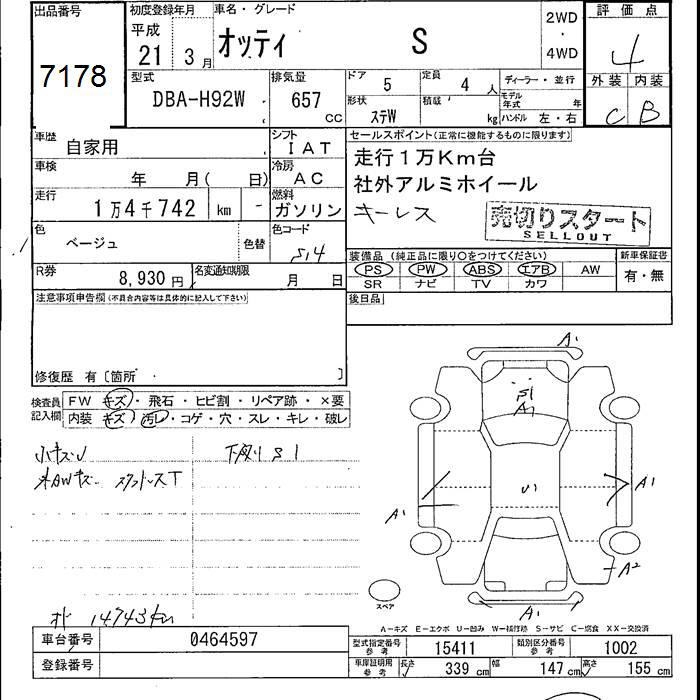 出品番号
7178
初度登録年月
平成
21 3月
車名・グレード
オッティ S
2WD
・
4WD
評価点
4
外装 内装
C B
型式
DBA-H92W
排気量
657 CC
ドア 5
定員 4 人
形状 ステW
積載 kg
ディーラー・並行
モデル年式 年
ハンドル 左・右
車歴 自家用
シフト IAT
車検 年 月( 日)
冷房 AC
走行 1万4千742 km
燃料 ガソリン
色 ベージュ 色替
色コード S14
R券 8,930円
名変通知期限 月 日
セールスポイント(正常に機能するものに限ります)
走行1万Km台
社外アルミホイール
キーレス
売切りスタート
SELLOUT
装備品(純正品に限り○をつけてください)
PS PW ABS エアB AW
SR ナビ TV カワ
新車保証書
有・無
後日品
注意事項申告欄(不具合内容等は具体的に記入して下さい)
修復歴 有〔箇所 〕
検査員記入欄
FW キズ・飛石・ヒビ割・リペア跡・×要
内装 キズ・汚レ・コゲ・穴・スレ・キレ・破レ
小キズU
下廻りS1
AWキズ
オド 14743km
A1
S1
A1
U1
A1
A1
A2
A1
スペア
A-キズ E-エクボ U-凹み W-補修跡 S-サビ C-腐食 XX-交換済
車台番号 0464597
登録番号
型式指定番号 参考 15411
類別区分番号 参考 1002
車庫証明用 参考 長さ 339 cm 幅 147 cm 高さ 155 cm